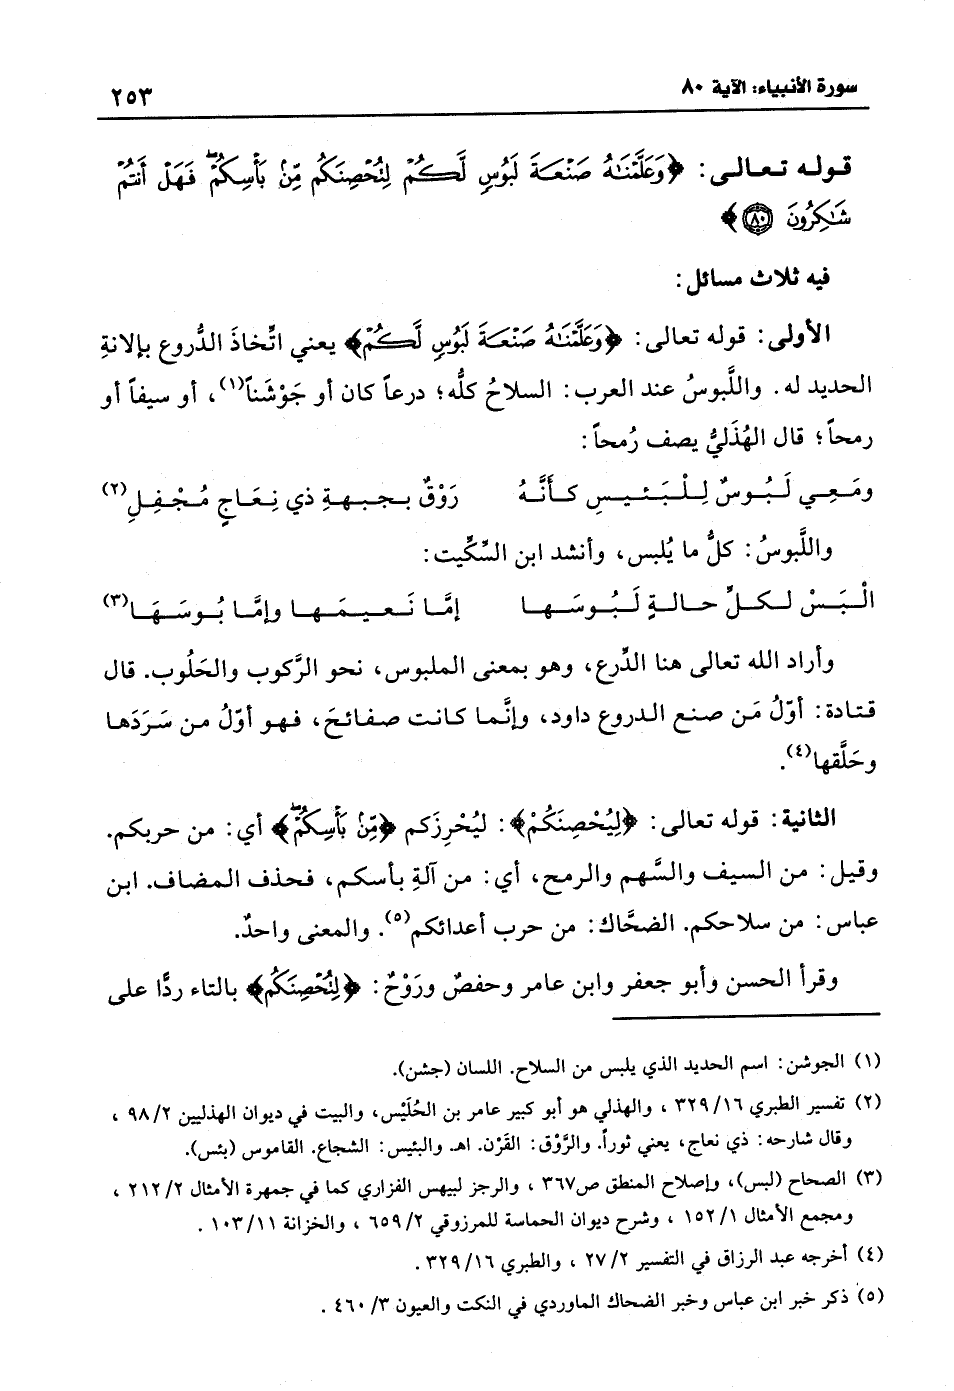 سورة الأنبياء: الآية ٨٠
٢٥٣
قوله تعالى: ﴿وَعَلَّمْنَٰهُ صَنْعَةَ لَبُوسٍ لَّكُمْ لِتُحْصِنَكُم مِّنۢ بَأْسِكُمْۖ فَهَلْ أَنتُمْ
شَٰكِرُونَ ۝٨٠﴾
فيه ثلاث مسائل:
الأولى: قوله تعالى: ﴿وَعَلَّمْنَٰهُ صَنْعَةَ لَبُوسٍ لَّكُمْ﴾ يعني اتِّخاذَ الدُّروع بإلانةِ
الحديد له. واللَّبوسُ عند العرب: السلاحُ كلُّه؛ درعاً كان أو جَوْشَناً(١)، أو سيفاً أو
رمحاً؛ قال الهُذَليُّ يصف رُمحاً:
ومَعِي لَبُوسٌ لِلْبَئيسِ كأنَّهُ رَوْقٌ بجبهةِ ذي نِعَاجٍ مُجْفِلِ(٢)
واللَّبوسُ: كلُّ ما يُلبس، وأنشد ابن السِّكِّيت:
الْبَسْ لكلِّ حالةٍ لَبُوسَها إمَّا نَعيمَها وإمَّا بُوسَهَا(٣)
وأراد الله تعالى هنا الدِّرع، وهو بمعنى الملبوس، نحو الرَّكوب والحَلُوب. قال
قتادة: أوّلُ مَن صنع الدروع داود، وإنَّما كانت صفائحَ، فهو أوّلُ من سَرَدَها
وحَلَّقها(٤).
الثانية: قوله تعالى: ﴿لِيُحْصِنَكُمْ﴾: ليُحْرِزَكم ﴿مِّنۢ بَأْسِكُمْۖ﴾ أي: من حربكم.
وقيل: من السيف والسَّهم والرمح، أي: من آلةِ بأسكم، فحذف المضاف. ابن
عباس: من سلاحكم. الضحَّاك: من حرب أعدائكم(٥). والمعنى واحدٌ.
وقرأ الحسن وأبو جعفر وابن عامر وحفصٌ ورَوْحٌ: ﴿لِتُحْصِنَكُم﴾ بالتاء ردًّا على
(١) الجوشن: اسم الحديد الذي يلبس من السلاح. اللسان (جشن).
(٢) تفسير الطبري ١٦/ ٣٢٩ ، والهذلي هو أبو كبير عامر بن الحُلَيْس، والبيت في ديوان الهذليين ٢/ ٩٨ ،
وقال شارحه: ذي نعاج، يعني ثوراً. والرَّوْق: القَرْن. اهـ. والبئيس: الشجاع. القاموس (بئس).
(٣) الصحاح (لبس)، وإصلاح المنطق ص٣٦٧ ، والرجز لبيهس الفزاري كما في جمهرة الأمثال ٢/ ٢١٢ ،
ومجمع الأمثال ١/ ١٥٢ ، وشرح ديوان الحماسة للمرزوقي ٢/ ٦٥٩ ، والخزانة ١١/ ١٠٣ .
(٤) أخرجه عبد الرزاق في التفسير ٢/ ٢٧ ، والطبري ١٦/ ٣٢٩ .
(٥) ذكر خبر ابن عباس وخبر الضحاك الماوردي في النكت والعيون ٣/ ٤٦٠ .